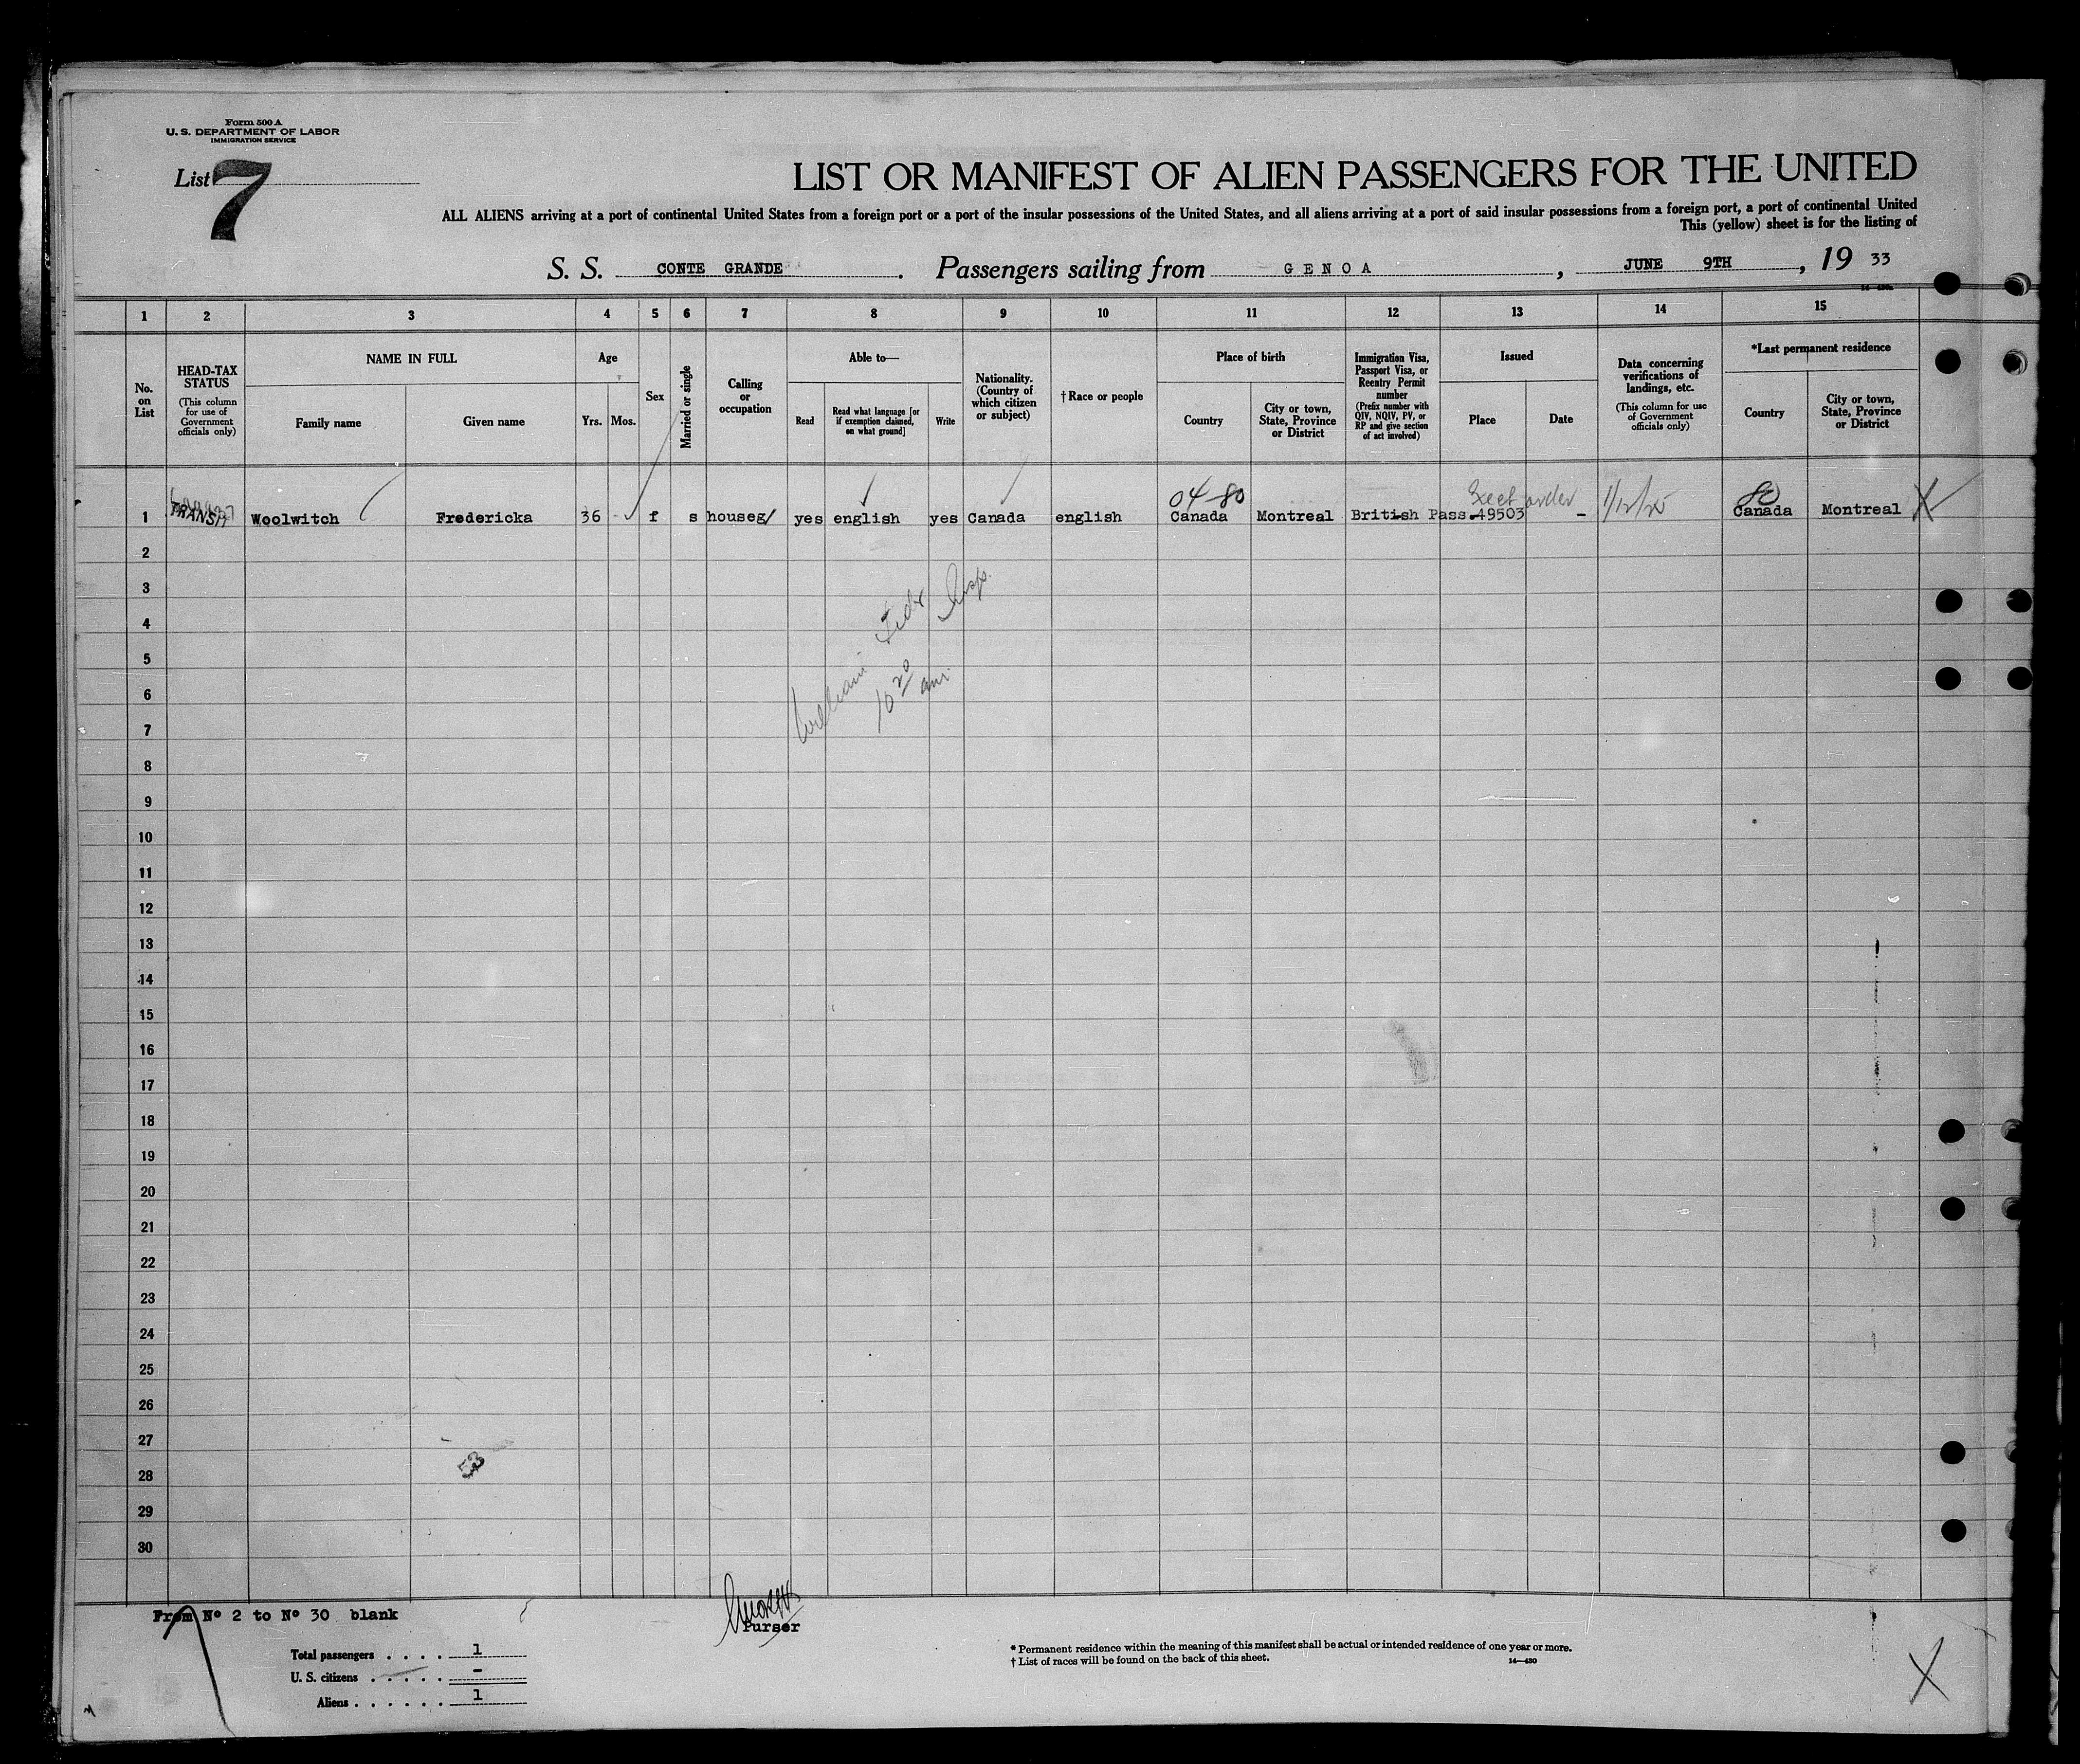 Form 500 A
U. S. DEPARTMENT OF LABOR
IMMIGRATION SERVICE
List 7
LIST OR MANIFEST OF ALIEN PASSENGERS FOR THE UNITED
ALL ALIENS arriving at a port of continental United States from a foreign port or a port of the insular possessions of the United States, and all aliens arriving at a port of said insular possessions from a foreign port, a port of continental United
This (yellow) sheet is for the listing of
S. S. CONTE GRANDE. Passengers sailing from GENOA, JUNE 9TH, 19 33
1 2 3 4 5 6 7 8 9 10 11 12 13 14 15
No. on List
HEAD-TAX STATUS
(This column for use of Government officials only)
NAME IN FULL
Family name
Given name
Age
Yrs.
Mos.
Sex
Married or single
Calling or occupation
Able to—
Read
Read what language [or if exemption claimed, on what ground]
Write
Nationality. (Country of which citizen or subject)
† Race or people
Place of birth
Country
City or town, State, Province or District
Immigration Visa, Passport Visa, or Reentry Permit number
(Prefix number with QIV, NQIV, PV, or RP and give section of act involved)
Issued
Place
Date
Data concerning verifications of landings, etc.
(This column for use of Government officials only)
*Last permanent residence
Country
City or town, State, Province or District
04-80 order 80
1 TRANSIT Woolwitch Fredericka 36 - f s houseg/ yes english yes Canada english Canada Montreal British Pass.49503 - Canada Montreal X
2
3
4
5
William
10 20 am
6
7
8
9
10
11
12
13
14
15
16
17
18
19
20
21
22
23
24
25
26
27
28
29
30
From Nº 2 to Nº 30 blank
Purser
Total passengers . . . . 1
U. S. citizens . . . . . -
Aliens . . . . . . 1
* Permanent residence within the meaning of this manifest shall be actual or intended residence of one year or more.
† List of races will be found on the back of this sheet.
14—430
X